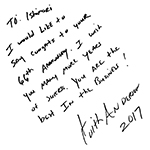 To: Ishimori
I would like to
say congrats to your
66th Anniversary. I wish
you many more years
of success. You are the
best In the Business!
Keith Anderson
2017